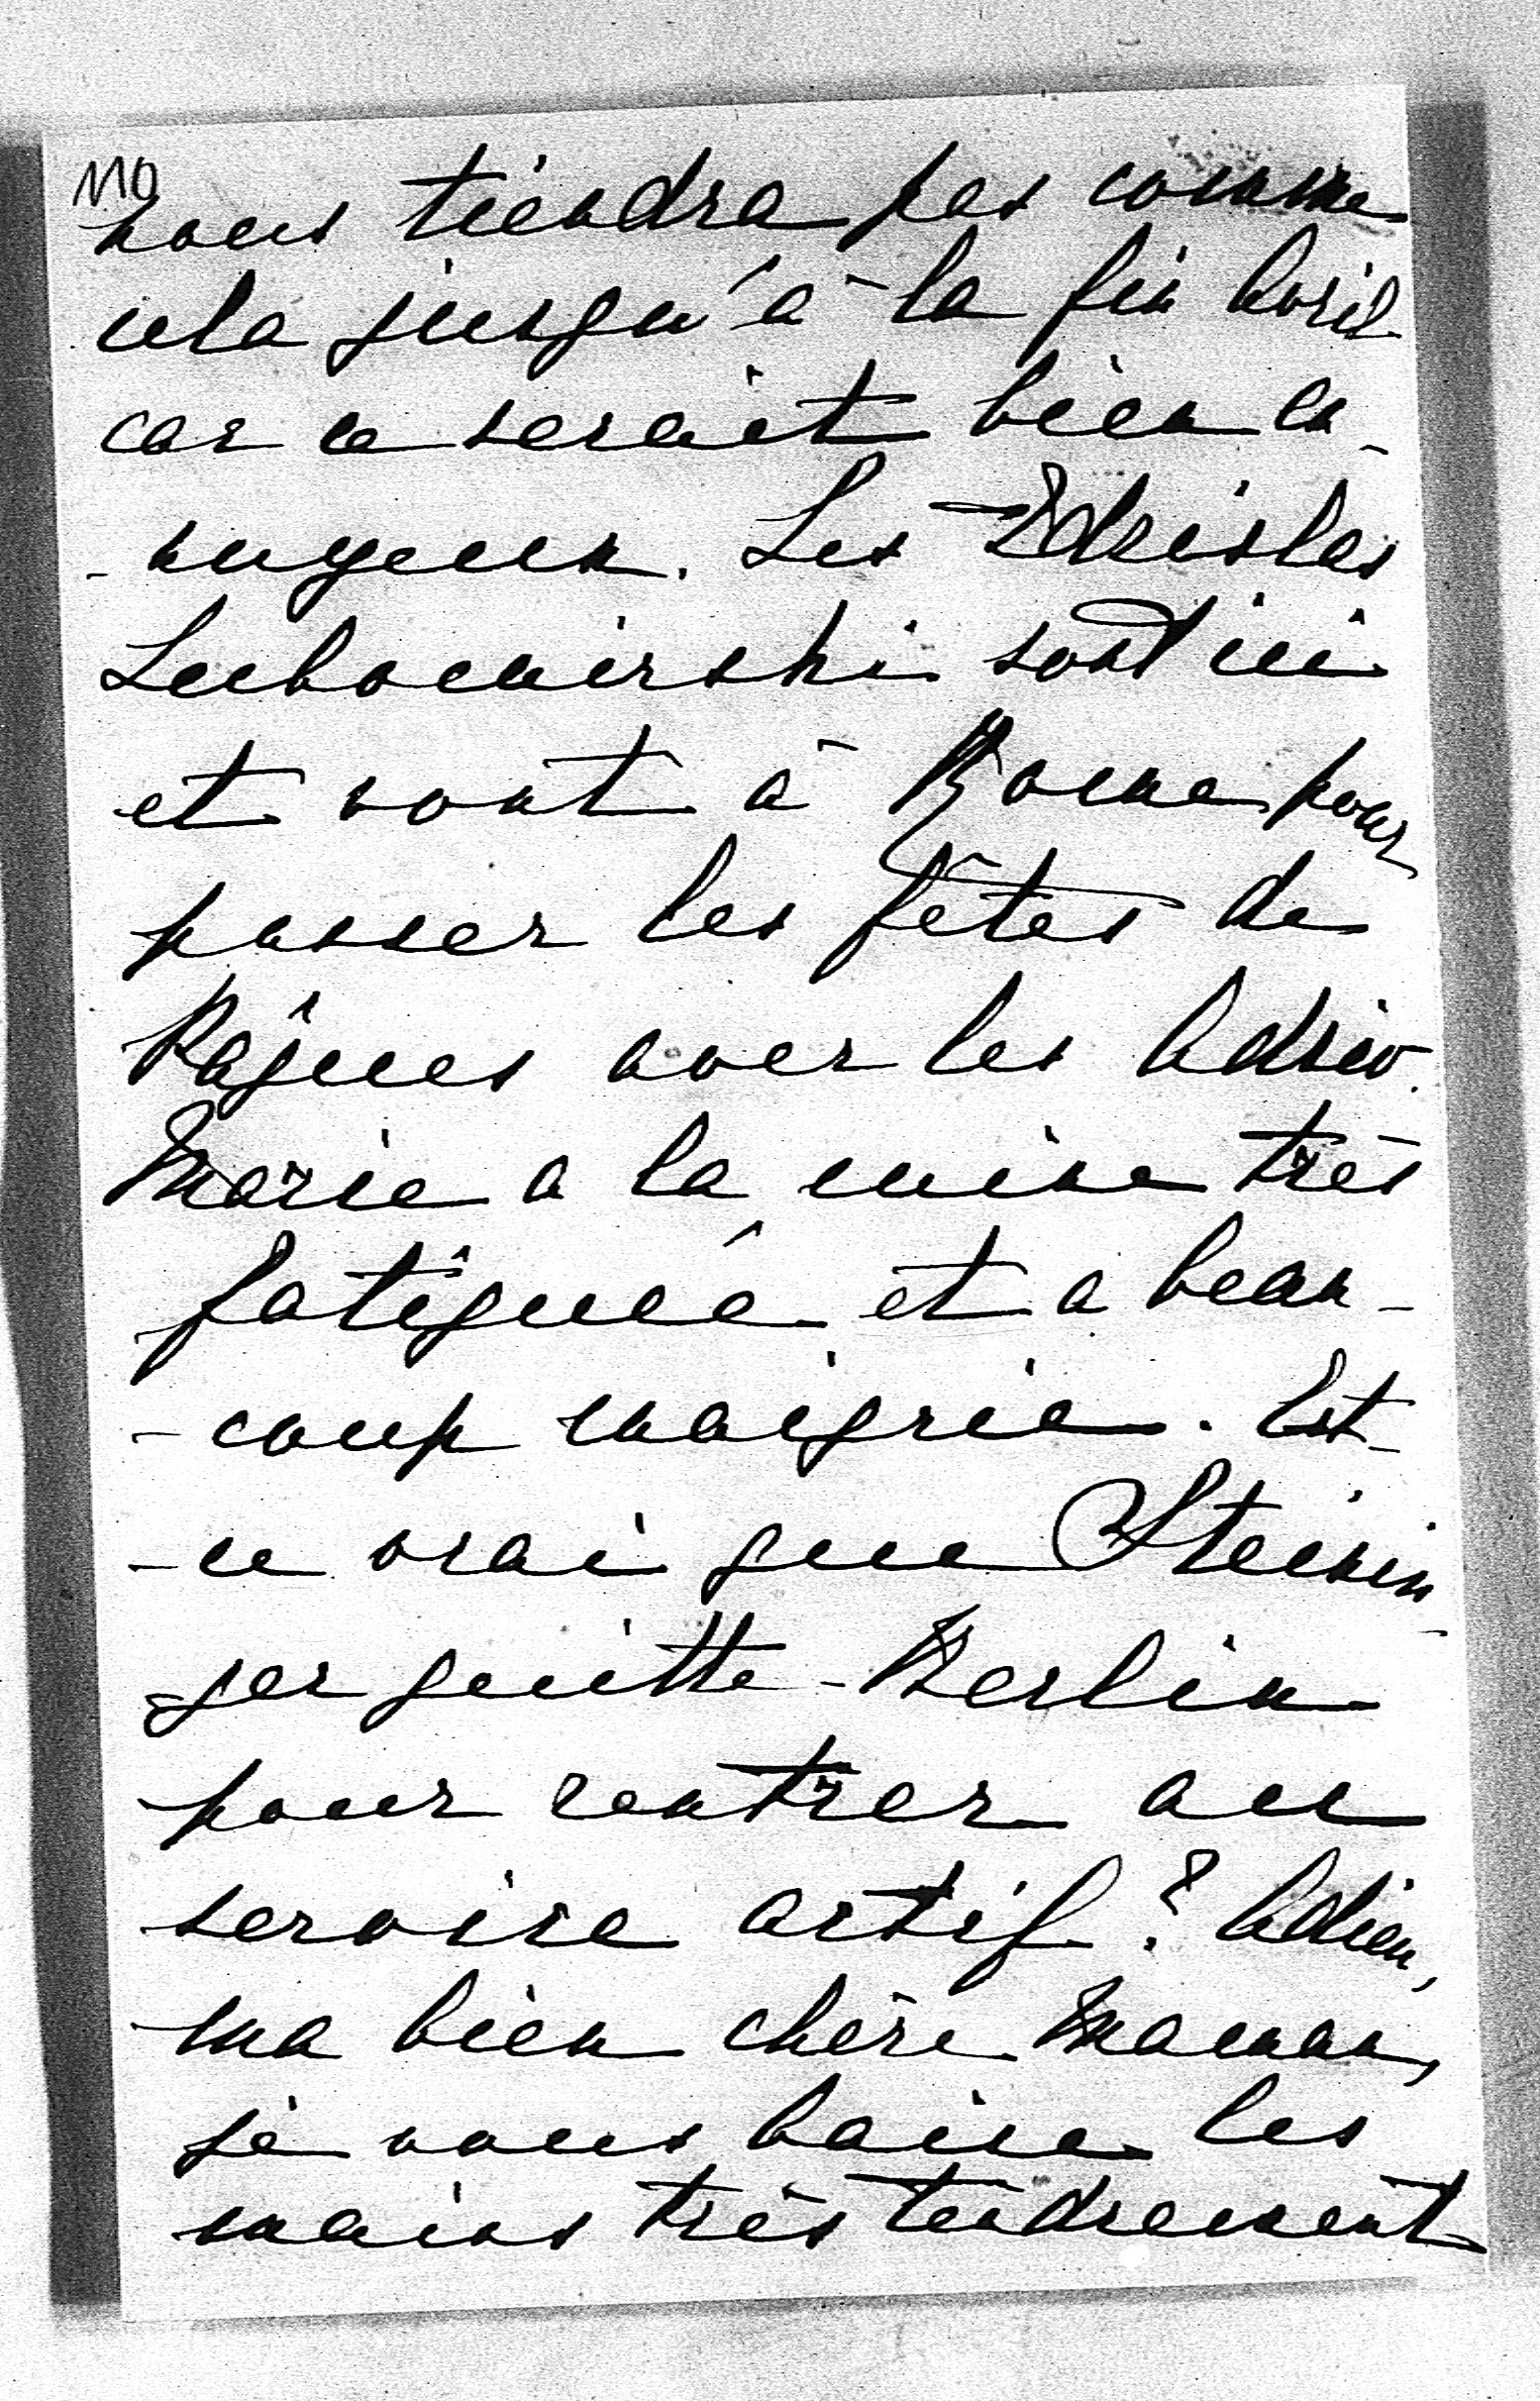 110
nous tiendra pas comme
cela jusqu'à la fin Avril
car ce serait bien en-
-nuyeux. Les Zdzislas
Lubomirski sont ici
et vont à Rome pour
passer les fêtes de
Pâques avec les Adrio.
Marie a la mine très
fatiguée et a beau-
-coup maigrie. Est-
-ce vrai que Steinin-
-ger quitte Berlin
pour rentrer au
service actif? Adieu,
ma bien chère Maman,
je vous baise les
mains très tendrement